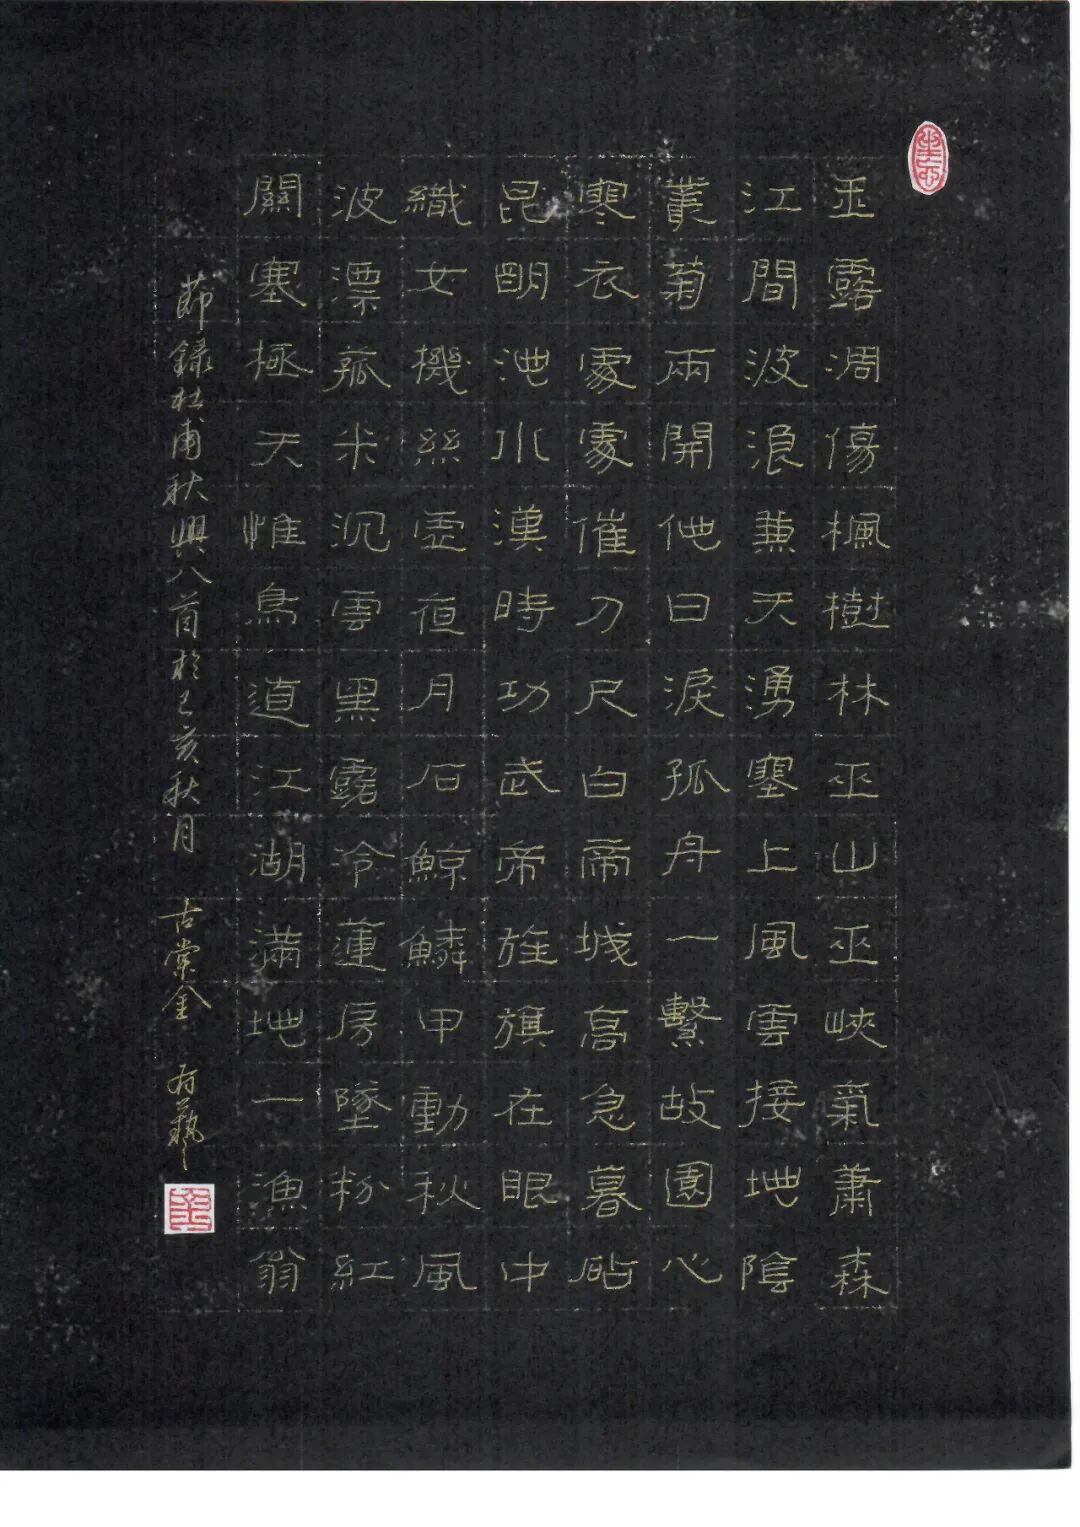 玉露凋傷楓樹林巫山巫峽氣蕭森
江間波浪兼天湧塞上風雲接地陰
叢菊兩開他日淚孤舟一繫故園心
寒衣處處催刀尺白帝城高急暮砧
昆明池水漢時功武帝旌旗在眼中
織女機絲虛夜月石鯨鱗甲動秋風
波漂菰米沉雲黑露冷蓮房墜粉紅
關塞極天惟鳥道江湖滿地一漁翁
節錄杜甫秋興八首於己亥秋月 古棠金有藝